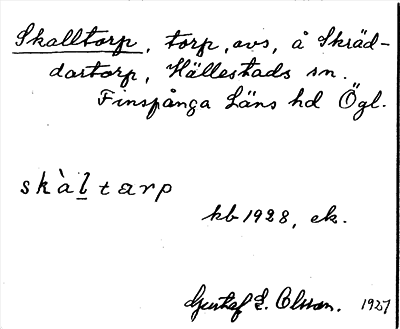 Skalltorp, torp, avs, å Skräd-
dartorp, Hällestads sn.
Finspånga Läns hd Ögl.
skàltarp
kb 1928, ek.
Gustaf E. Olsson. 1927